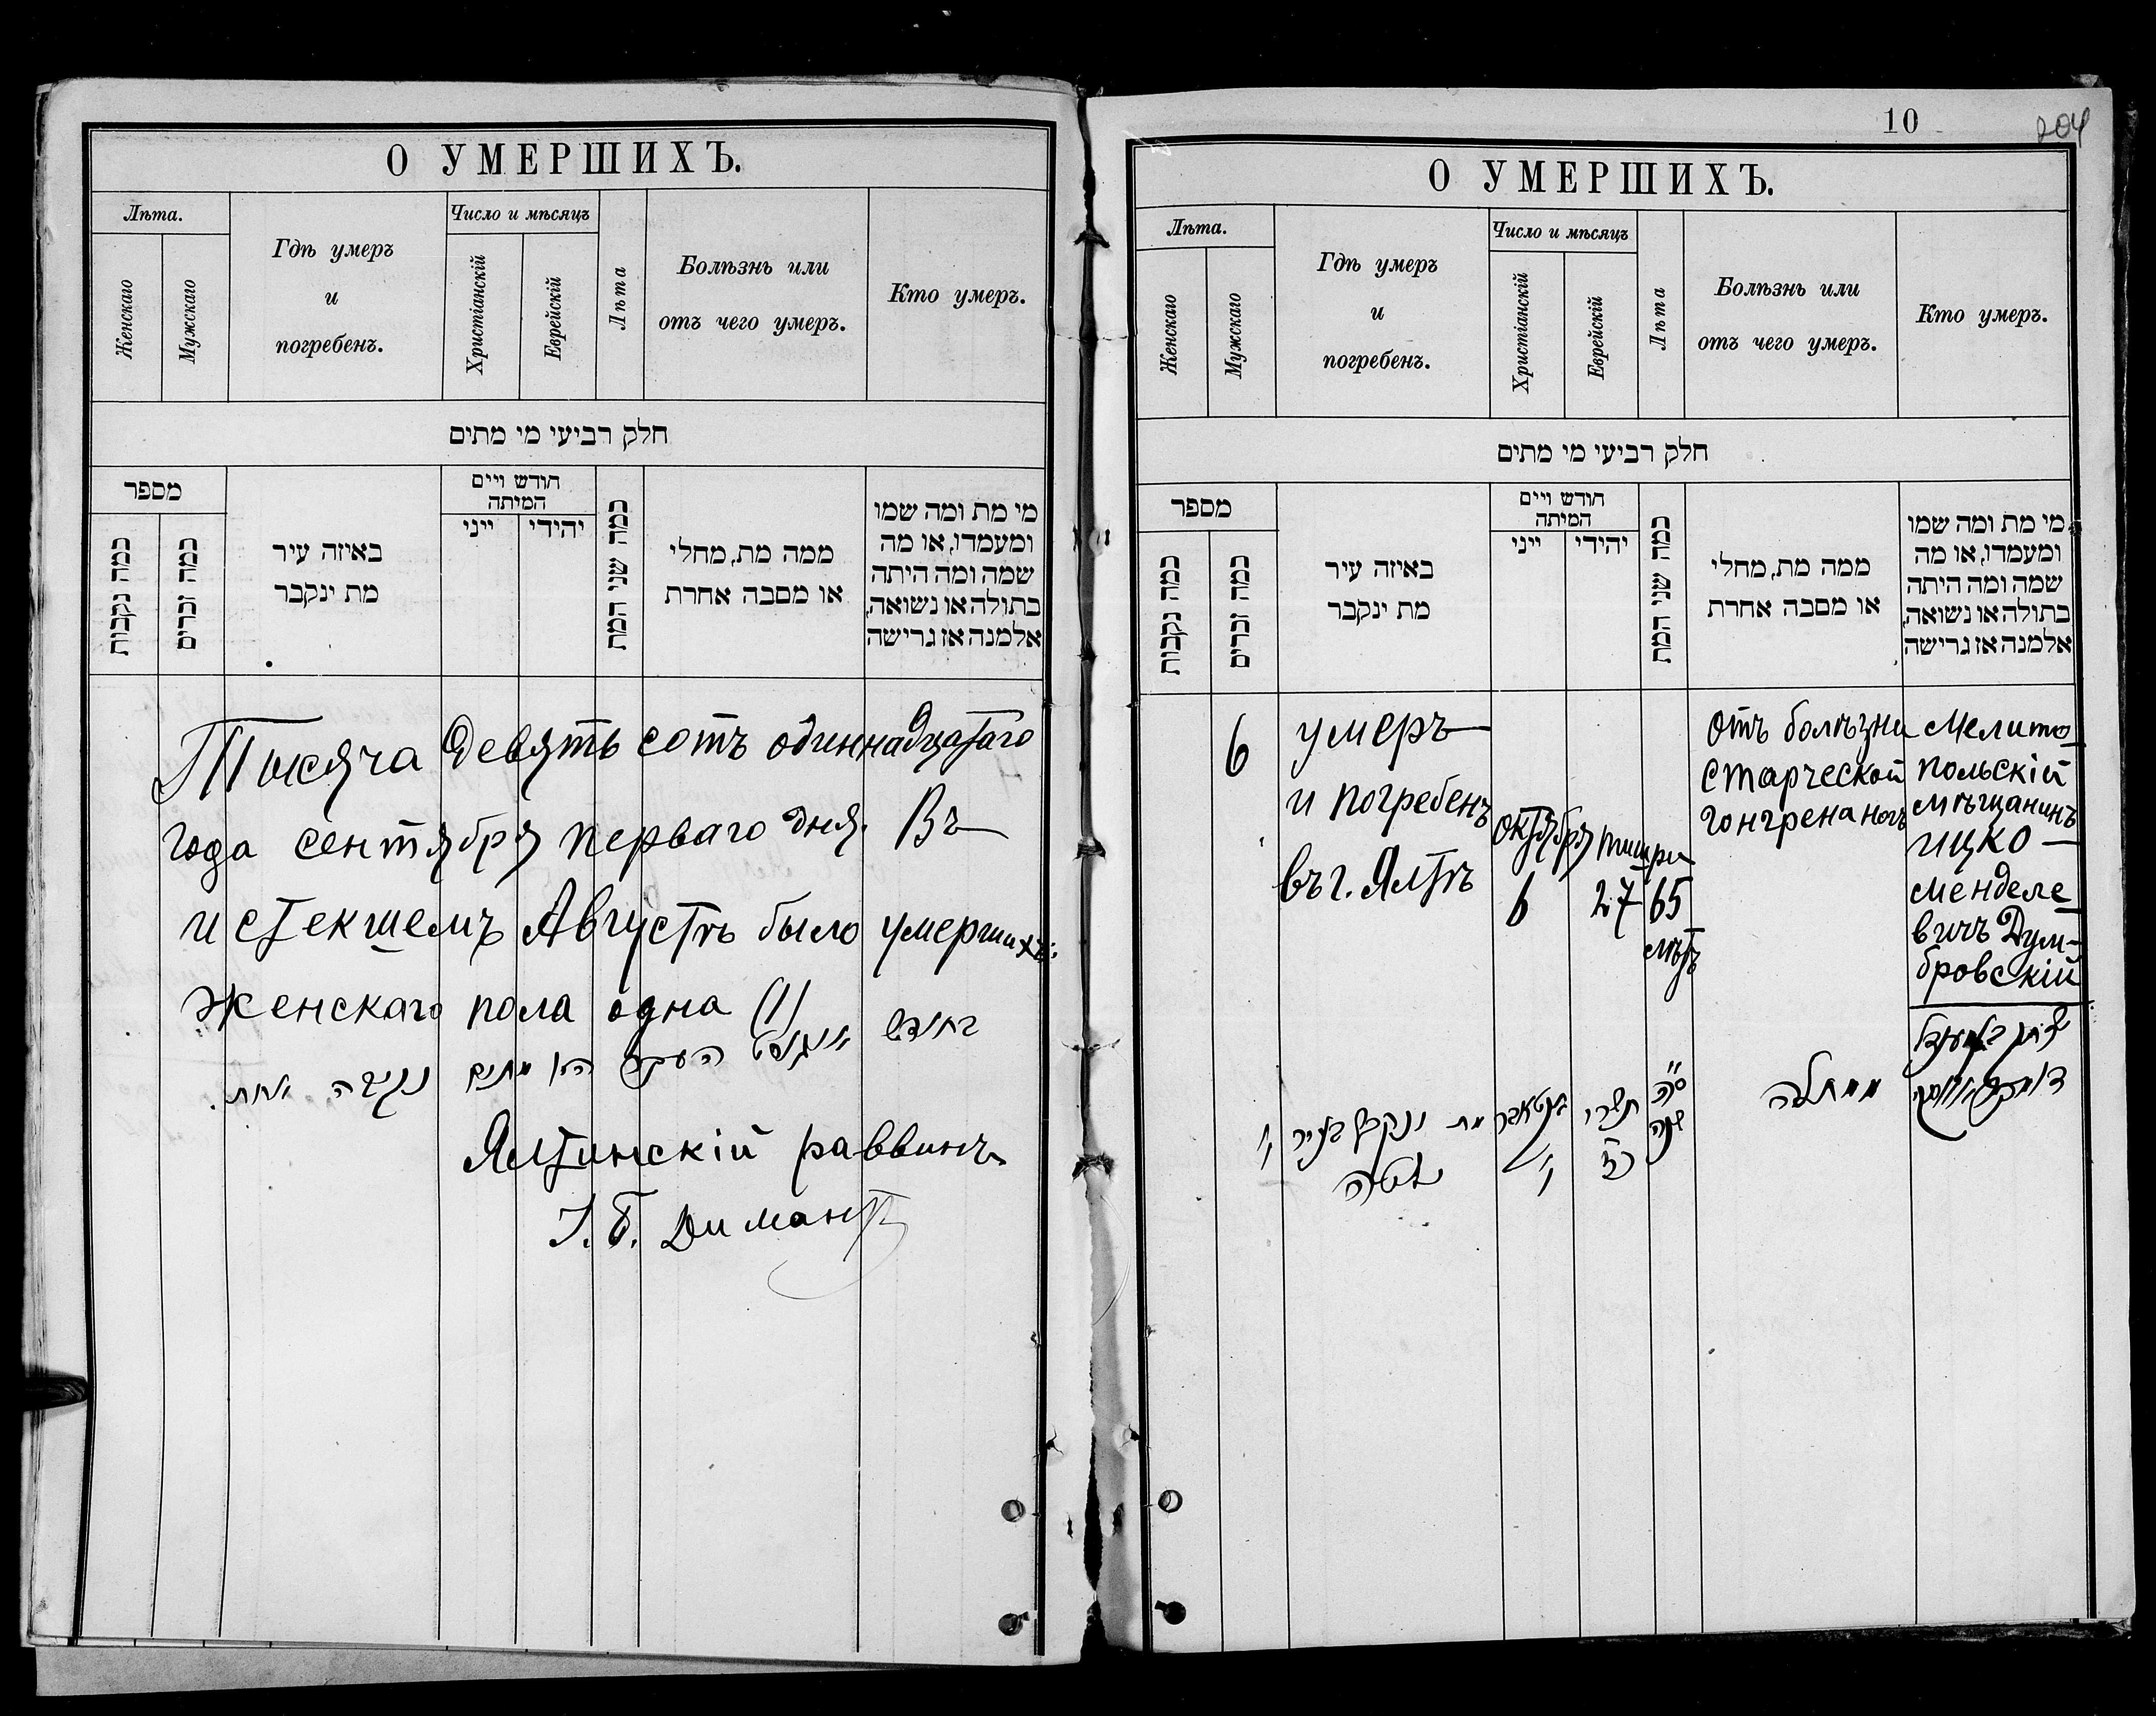 О УМЕРШИХЪ.
Лѣта.
Женскаго
Мужскаго
Гдѣ умеръ
и
погребенъ.
Число и мѣсяцъ
Христіанскій
Еврейскій
Лѣта
Болѣзнь или
отъ чего умеръ.
Кто умеръ.
חלק רביעי מי מתים
מספר
כמה נקבות
כמה זכרים
באיזה עיר
מת ינקבר
חודש ויים
המיתה
ייני
יהידי
כמה שני המת
ממה מת, מחלי
או מסבה אחרת
מי מת ומה שמו
ומעמדו, או מה
שמה ומה היתה
בתולה או נשואה,
אלמנה אז גרישה
Тысяча девять сотъ одиннадцатаго
года сентября перваго дня. Въ
истекшемъ Августѣ было умершихъ:
женскаго пола одна (1)
בחודש אויגוסט העבר היו מתים נקבה אחת.
Ялтинскій раввинъ
І. Б. Димантъ
10
204
О УМЕРШИХЪ.
Лѣта.
Женскаго
Мужскаго
Гдѣ умеръ
и
погребенъ.
Число и мѣсяцъ
Христіанскій
Еврейскій
Лѣта
Болѣзнь или
отъ чего умеръ.
Кто умеръ.
חלק רביעי מי מתים
מספר
כמה נקבות
כמה זכרים
באיזה עיר
מת ינקבר
חודש ויים
המיתה
ייני
יהידי
כמה שני המת
ממה מת, מחלי
או מסבה אחרת
מי מת ומה שמו
ומעמדו, או מה
שמה ומה היתה
בתולה או נשואה,
אלמנה אז גרישה
6
умеръ
и погребенъ
въ г. Ялтѣ
октября
6
тишри
27
65
лѣтъ
отъ болѣзни
старческой
гонгрена ногъ
Мелито-
польскій
мѣщанинъ
ицко
менделе-
вичъ Дум-
бровскій
ו׳
מת ונקבר בעיר
יאלטה
אקטאבר
ו׳
תשרי
כ״ז
ס״ה
שנה
ממחלה
יצחק בן מענדל
דומבראווסקי